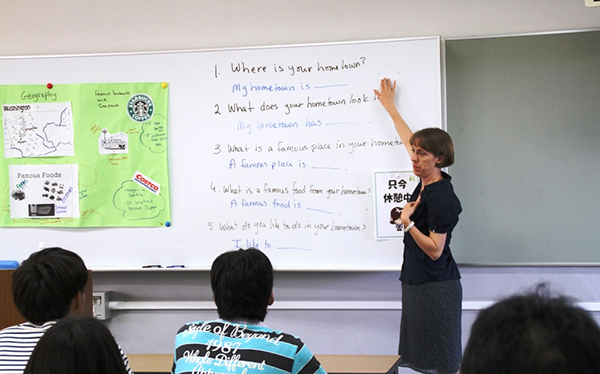 Geography
Washington
Famous Foods
Famous landmarks and Companies
STARBUCKS
COSTCO
1. Where is your hometown?
My hometown is
2. What does your hometown look
My hometown has
3. What is a famous place in your hometown
A famous place is
4. What is a famous food from your hometown?
A famous food is
5. What do you like to do in your hometown?
I like to
只今
休憩中
Style of Beyond
1987
Whole Different